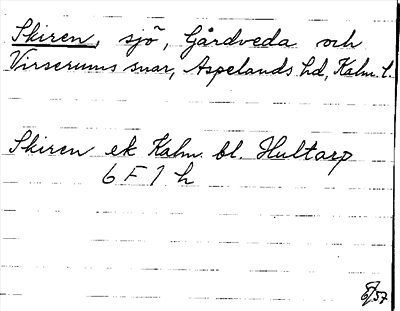 Skiren, sjö, Gårdveda och
Virserums snar, Aspelands hd, Kalm. l.
Skiren ek Kalm. bl. Hultarp
6 F 1 h
57